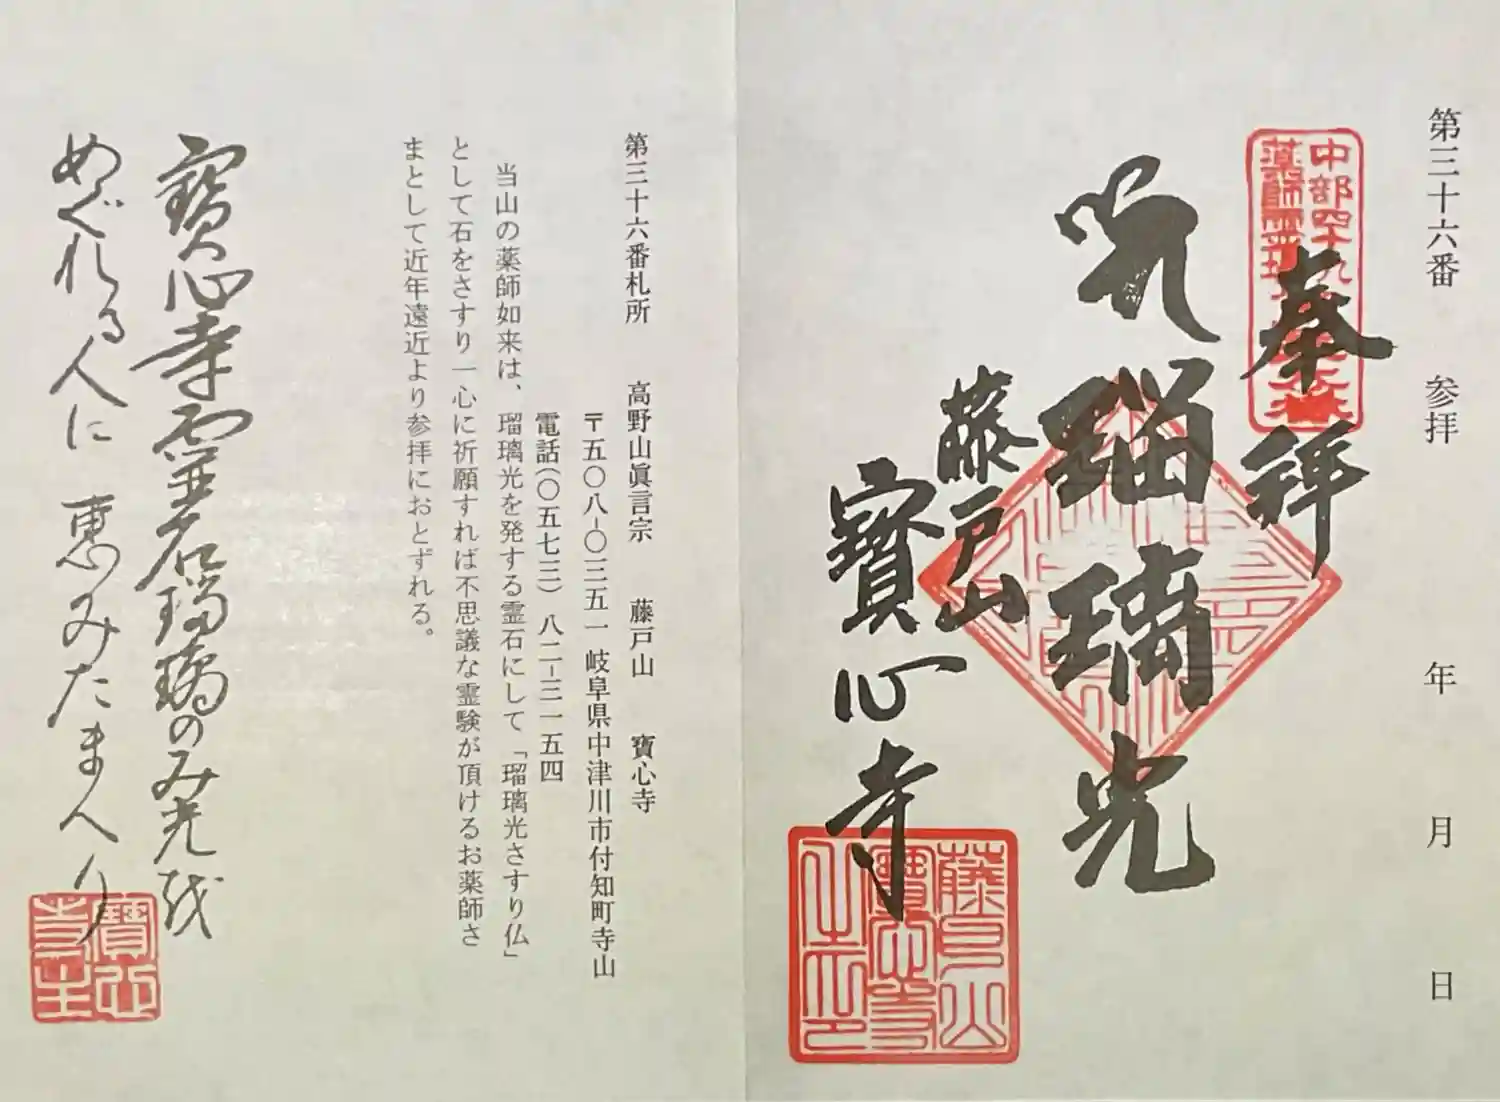 第三十六番 参拝 年 月 日
中部四十九
薬師霊場
奉拝
瑠璃光
藤戸山
寳心寺
第三十六番札所 高野山眞言宗 藤戸山 寳心寺
〒五〇八-〇三五一 岐阜県中津川市付知町寺山
電話(〇五七三)八二-三一五四
当山の薬師如来は、瑠璃光を発する霊石にして「瑠璃光さすり仏」
として石をさすり一心に祈願すれば不思議な霊験が頂けるお薬師さ
まとして近年遠近より参拝におとずれる。
寳心寺霊石瑠璃のみ光を
めぐれる人に恵みたまへり